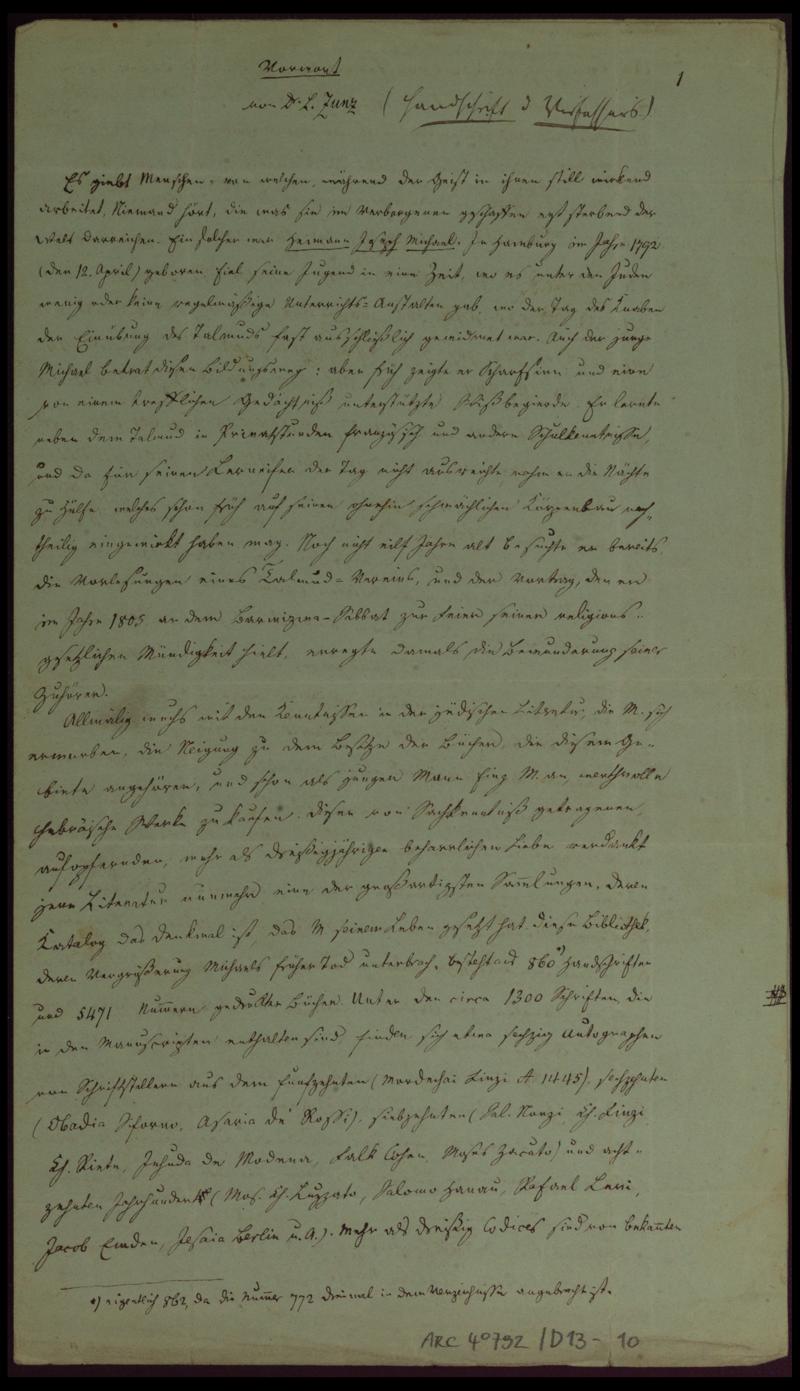 Vorwort
1
von Dr. L. Zunz (Handschrift d Verfassers)
Es giebt Menschen, von welchen, während der Geist in ihnen still wirkend
arbeitet, Niemand hört, die was sie im Verborgenen geschaffen erst sterbend der
Welt darreichen. Ein solcher war Hermann Joseph Michael. In Hamburg im Jahre 1792
(den 12. April) geboren, fiel seine Jugend in eine Zeit, wo es unter den Juden
wenig oder keine regelmäßige Unterrichts-Anstalten gab, wo der Tag des Knaben
der Einübung des Talmuds fast ausschließlich gewidmet war. Auch der junge
Michael betrat diesen Bildungsweg; aber früh zeigte er Scharfsinn und eine
von einem trefflichen Gedächtniß unterstützte Wißbegierde. Er lernte
neben dem Talmud in Privatstunden französisch und andere Schulkenntnisse,
und da für seinen Lerneifer der Tag nicht ausreichte nahm er die Nächte
zu Hülfe, welches schon früh auf seinen ohnehin schwächlichen Körperbau nach-
theilig eingewirkt haben mag. Noch nicht eilf Jahre alt besuchte er bereits
die Vorlesungen eines Talmud-Vereins, und der Vortrag, den er
im Jahre 1805 an dem Barmizwa-Sabbat zur Feier seiner religions-
gesetzlichen Mündigkeit hielt, erregte damals die Bewunderung seiner
Zuhörer.
Allmälig wuchs mit den Kenntnissen in der jüdischen Literatur, die M. sich
erworben, die Neigung zu dem Besitze der Bücher, die diesem Ge-
biete angehören, und schon als junger Mann fing M. an, werthvolle
hebräische Werke zu kaufen. Dieser von Sachkenntniß getragenen,
aufopfernden, mehr als dreißigjährigen beharrlichen Liebe verdankt
jene Literatur nunmehr eine der großartigsten Sammlungen, deren
Katalog das Denkmal ist, das M. seinem Leben gesetzt hat. Diese Bibliothek,
deren Vergrößerung Michaels früher Tod unterbrach, besteht aus 860*) Handschriften
und 5471 Nummern gedruckter Bücher. Unter den circa 1300 Schriften, die
in den Manuscripten enthalten sind, finden sich etwa sechzig Autographen
von Schriftstellern aus dem funfzehnten (Mordechai Finzi A. 1445), sechzehnten
(Obadia Sforno, Asaria de' Rossi), siebzehnten (Sal. Norzi, Ch. Finzi,
Ch. Riete, Jehuda de Modena, Falk Cohen, Moses Zacuto) und acht-
zehnten Jahrhundert (Mos. Ch. Luzzato, Salomo Hanau, Rafael Levi,
Jacob Emden, Jesaia Berlin u. A.). Mehr als dreißig Codices sind von bekannten
*) eigentlich 862, da die Nummer 772 dreimal in dem Verzeichnisse angebracht ist.
ARC 4°792 /D13-10